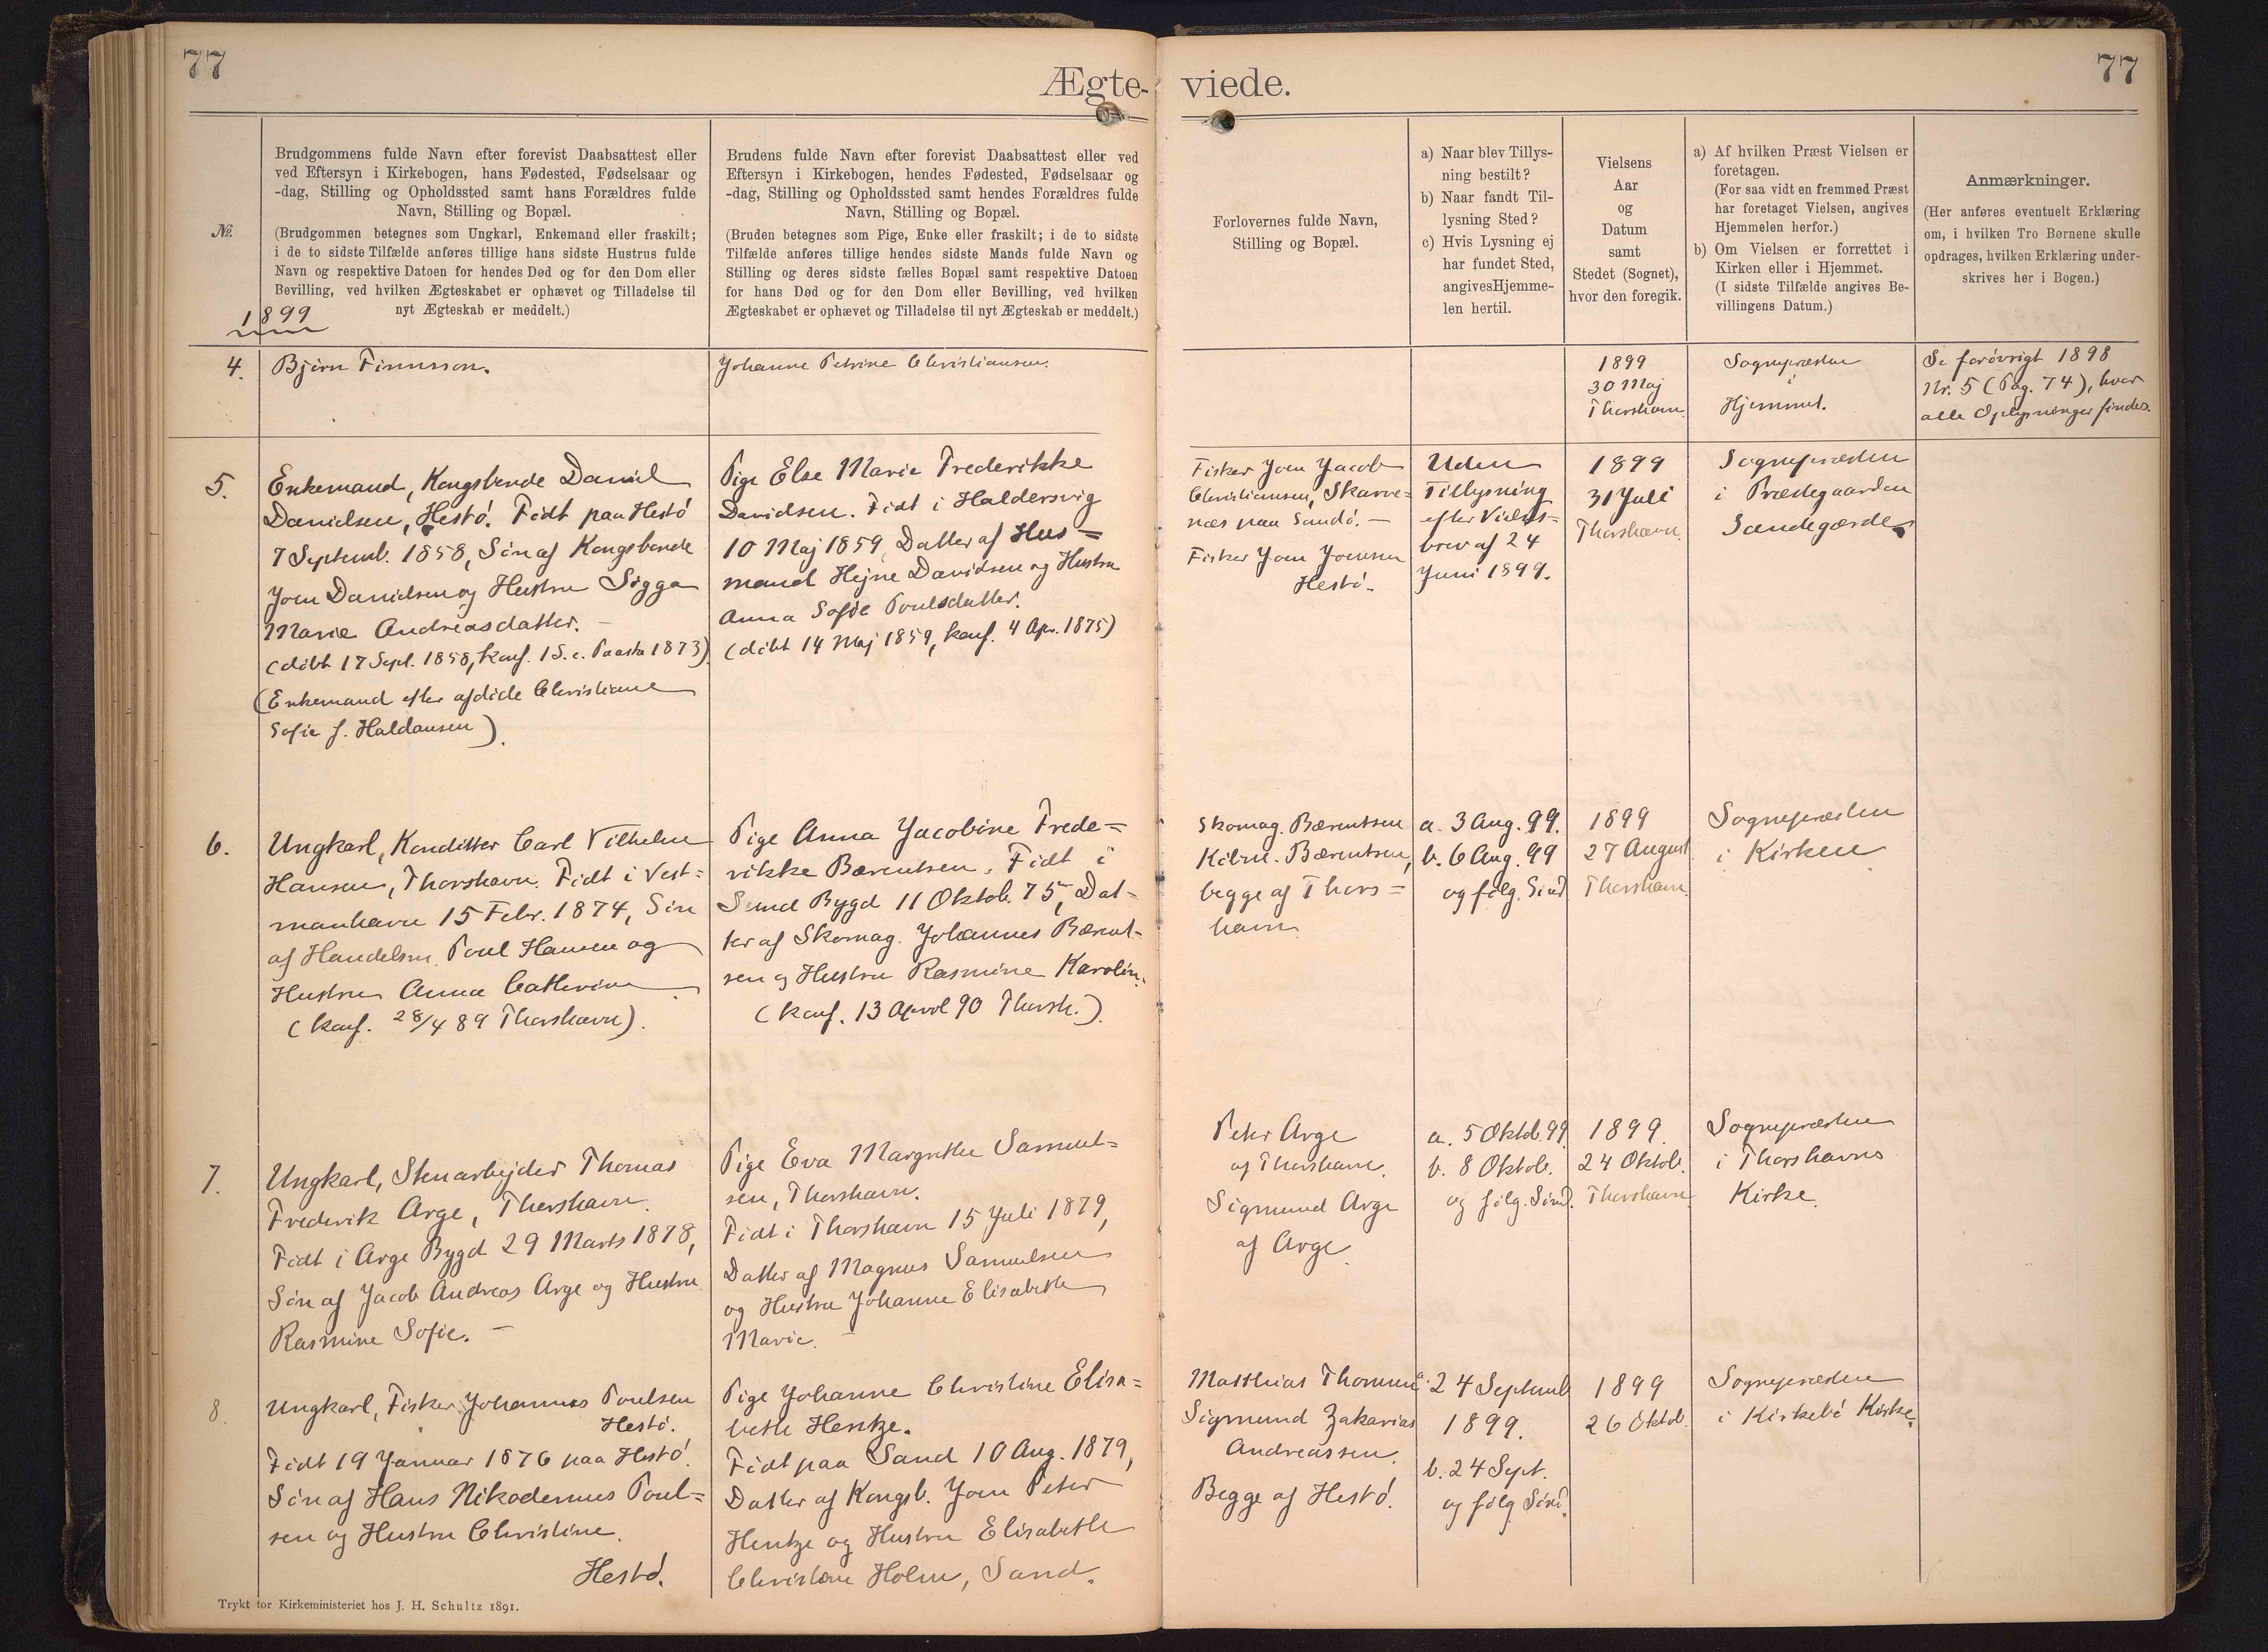 77
77
Ægte-viede.
№.
Brudgommens fulde Navn efter forevist Daabsattest eller
ved Eftersyn i Kirkebogen, hans Fødested, Fødselsaar og
-dag, Stilling og Opholdssted samt hans Forældres fulde
Navn, Stilling og Bopæl.
(Brudgommen betegnes som Ungkarl, Enkemand eller fraskilt;
i de to sidste Tilfælde anføres tillige hans sidste Hustrus fulde
Navn og respektive Datoen for hendes Død og for den Dom eller
Bevilling, ved hvilken Ægteskabet er ophævet og Tilladelse til
nyt Ægteskab er meddelt.)
Brudens fulde Navn efter forevist Daabsattest eller ved
Eftersyn i Kirkebogen, hendes Fødested, Fødselsaar og
-dag, Stilling og Opholdssted samt hendes Forældres fulde
Navn, Stilling og Bopæl.
(Bruden betegnes som Pige, Enke eller fraskilt; i de to sidste
Tilfælde anføres tillige hendes sidste Mands fulde Navn og
Stilling og deres sidste fælles Bopæl samt respektive Datoen
for hans Død og for den Dom eller Bevilling, ved hvilken
Ægteskabet er ophævet og Tilladelse til nyt Ægteskab er meddelt.)
Forlovernes fulde Navn,
Stilling og Bopæl.
a) Naar blev Tillys-
ning bestilt?
b) Naar fandt Til-
lysning Sted?
c) Hvis Lysning ej
har fundet Sted,
angives Hjemme-
len hertil.
Vielsens
Aar
og
Datum
samt
Stedet (Sognet),
hvor den foregik.
a) Af hvilken Præst Vielsen er
foretagen.
(For saa vidt en fremmed Præst
har foretaget Vielsen, angives
Hjemmelen herfor.)
b) Om Vielsen er forrettet i
Kirken eller i Hjemmet.
(I sidste Tilfælde angives Be-
villingens Datum.)
Anmærkninger.
(Her anføres eventuelt Erklæring
om, i hvilken Tro Børnene skulle
opdrages, hvilken Erklæring under-
skrives her i Bogen.)
1899
4.
Bjørn Finnsson.
Johanne Petrine Christiansen.
1899
30 Maj
Thorshavn
Sognepræsten
i
Hjemmet.
Se forøvrigt 1898
Nr. 5 (Pag. 74), hvor
alle Oplysninger findes.
5.
Enkemand, Kongsbonde Daniel
Danielsen, Hestö. Födt paa Hestö
7 Septemb. 1858, Sön af Kongsbonde
Joen Danielsen og Hustru Sigga
Marie Andreasdatter. –
(döbt 17 Sept. 1858, konf. 1 S. e. Paaske 1873)
(Enkemand efter afdöde Christiane
Sofie f. Haldansen).
Pige Else Marie Frederikke
Davidsen. Födt i Haldersvig
10 Maj 1859, Datter af Hus=
mand Hejne Davidsen og Hustru
Anna Sofie Poulsdatter.
(döbt 14 Maj 1859, konf. 4 Apr. 1875)
Fisker Joen Jacob
Christiansen, Skarve=
næs paa Sandö. –
Fisker Joen Joensen
Hestö.
Uden
Tillysning
efter Vielses=
brev af 24
Juni 1899.
1899
31 Juli
Thorshavn.
Sognepræsten
i Præstegaarden
Sandegærde
6.
Ungkarl, Konditter Carl Vilhelm
Hansen, Thorshavn. Födt i Vest=
manhavn 15 Febr. 1874, Sön
af Handelsm. Poul Hansen og
Hustru Anna Cathrine.
(konf. 28/4 89 Thorshavn).
Pige Anna Jacobine Frede=
rikke Bærentsen. Födt i
Sund Bygd 11 Oktob. 75, Dat-
ter af Skomag. Johannes Bærent-
sen og Hustru Rasmine Karolin.
(konf. 13 April 90 Thorsh.)
Skomag. Bærentsen
Bærentsen,
begge af Thors=
havn
a. 3 Aug. 99.
b. 6 Aug. 99
og fölg. Sönd
1899
27 August
Thorshavn
Sognepræsten
i Kirken
7.
Ungkarl, Stenarbejder Thomas
Frederik Arge, Thorshavn.
Födt i Arge Bygd 29 Marts 1878,
Sön af Jacob Andreas Arge og Hustru
Rasmine Sofie. –
Pige Eva Margrethe Samuel=
sen, Thorshavn.
Födt i Thorshavn 15 Juli 1879,
Datter af Magnus Samuelsen
og Hustru Johanne Elisabeth
Marie. –
Peter Arge
af Thorshavn.
Sigmund Arge
af Arge
a. 5 Oktob. 99
b. 8 Oktob.
og fölg. Sönd.
1899.
24 Oktob.
Thorshavn
Sognepræsten
i Thorshavns
Kirke.
8.
Ungkarl, Fisker Johannes Poulsen
Hestö.
Födt 19 Januar 1876 paa Hestö.
Sön af Hans Nikodemus Poul=
sen og Hustru Christine.
Hestö.
Pige Johanne Christine Elisa=
beth Hentze.
Födt paa Sand 10 Aug. 1879,
Datter af Kongsb. Joen Peter
Hentze og Hustru Elisabeth
Christine Holm, Sand.
Matthias Thomsen
Sigmund Zakarias
Andreassen.
Begge af Hestö.
a. 24 Septemb
1899.
b. 24 Sept.
og fölg Sönd.
1899
26 Oktob.
Sognepræsten
i Kirkebö Kirke.
Trykt for Kirkeministeriet hos J. H. Schultz 1891.